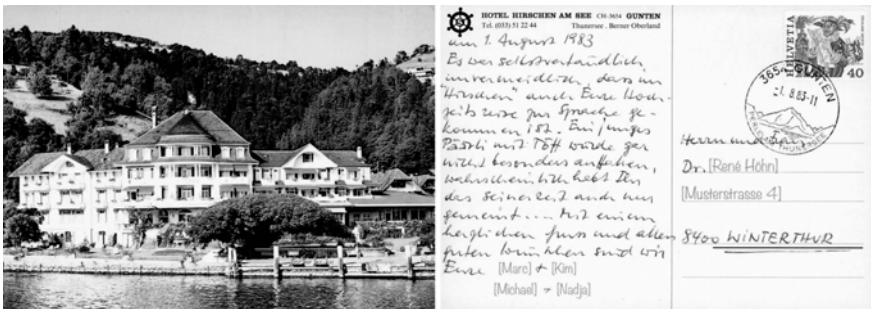 HOTEL HIRSCHEN AM SEE CH-3654 GUNTEN
Tel. (033) 51 22 44 Thunersee . Berner Oberland
am 1. August 1983
Es war selbstverständlich
unvermeidlich, dass im
"Hirschen" auch Eure Hoch-
zeitsreise zur Sprache ge-
kommen ist. Ein junges
Päärli mit Töff würde gar
nicht besonders auffallen,
wahrscheinlich habt Ihr
das seinerzeit auch nur
gemeint... Mit einem
herzlichen Gruss und allen
guten Wünschen sind wir
Eure [Marc] + [Kim]
[Michael] + [Nadja]
HELVETIA
40
3654 GUNTEN
-1. 8.83-11
Herrn und
Dr. [René Höhn]
[Musterstrasse 4]
8400 WINTERTHUR